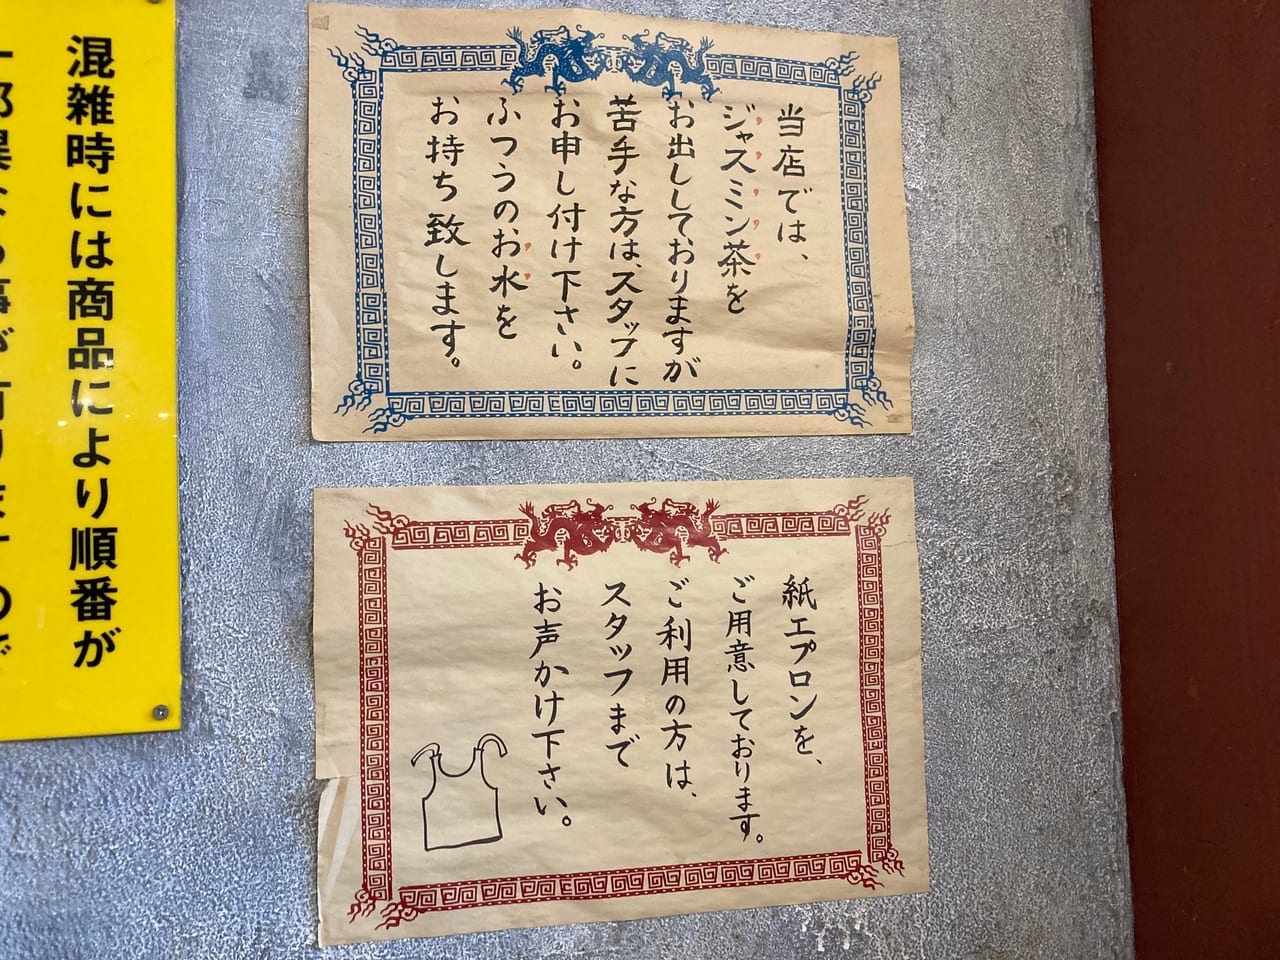 当店では、
ジャスミン茶を
お出ししておりますが
苦手な方は、スタッフに
お申し付け下さい。
ふつうのお水を
お持ち致します。
紙エプロンを、
ご用意しております。
ご利用の方は、
スタッフまで
お声かけ下さい。
混雑時には商品により順番が